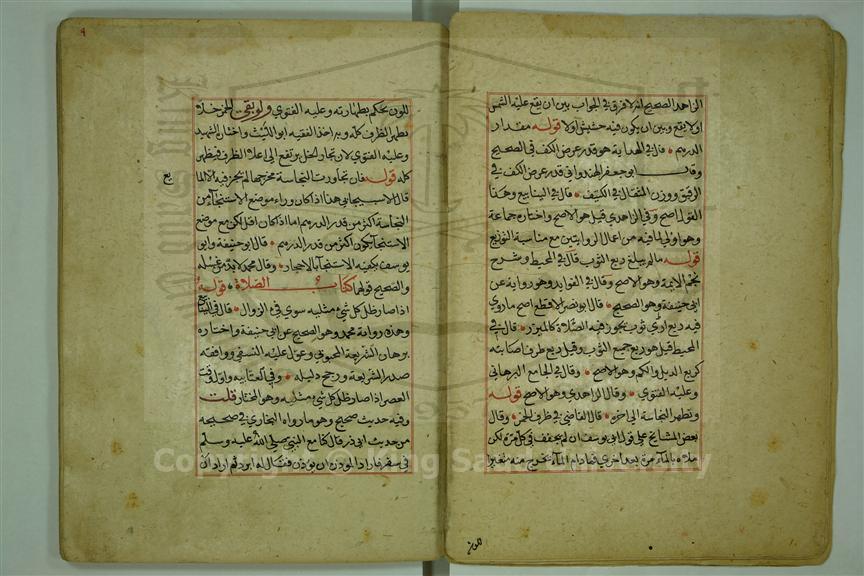 الزاهد الصحيح انه لا فرق في الجواب بين ان يقع عليه الشمس
اولا يقع وبين ان يكون فيه حشيش اولا قوله مقدار
الدرهم قال في الهداية هو قدر عرض الكف في الصحيح
وقال ابو جعفر الهندواني قدر عرض الكف في
الرقيق ووزن المثقال في الكثيف قال في الينابيع وهذا
القول اصح وفي الزاهدي قيل هو الاصح واختاره جماعة
وهو اولى لما فيه من اعمال الروايتين مع مناسبة التوزيع
قوله مالم يبلغ ربع الثوب قال في المحيط وشرح
نجم الايمة وهو الاصح وقال في الفوايد وهو رواية عن
ابي حنيفة وهو الصحيح قال ابو نصر الاقطع اصح ما روي
فيه ربع ادنى ثوب يجوز فيه الصلاة كالميزر قال في
المحيط قيل هو ربع جميع الثوب وقيل ربع طرف اصابته
كربع الذيل والكم وهو الاصح وقال في الجامع البرهاني
وعليه الفتوي وقال الزاهدي وهو الاصح قوله
وتطهر النجاسة الى اخره قال القاضي في ظرف الخمر وقال
بعض المشايخ على قول ابي يوسف ان لم يجفف في كل مرة لكن
ملاه بالماء مرة بعد اخري فما دام الماء يخرج منه متغيرا
اللون
٩
اللون يحكم بطهارته وعليه الفتوي ولو بقى الخمر خلا
تطهر الظرف كله وبه اخذ الفقيه ابو الليث واختار الشهيد
وعليه الفتوي لان بخار الخل يرتفع الى اعلا الظرف فيطهر
كله قوله فان تجاوزت النجاسة مخرجها لم يجز فيه الا الما
قال الاسبيجابي هذا اذا كان وراء موضع الاستنجآ من
النجاسة اكثر من قدر الدرهم اما اذا كان اقل لكن مع موضع
الاستنجآ يكون اكثر من قدر الدرهم قال ابو حنيفة وابو
يوسف يكفيه الاستنجآ بالاحجار وقال محمد لا بد من غسله
والصحيح قولهما كتاب الصلاة قوله
اذا صار ظل كل شيء مثليه سوي فيء الزوال قال في
وهذه رواية محمد وهو الصحيح عن ابي حنيفة واختاره
برهان الشريعة المحبوبي وعول عليه النسفي ووافقه
صدر الشريعة ورجح دليله وفي الغياثيه واول وقت
العصر اذا صار ظل كل شيء مثليه وهو المختار قلت
وفيه حديث صحيح وهو ما رواه البخاري في صحيحه
من حديث ابي ذر قال كنا مع النبي صلى الله عليه وسلم
في سفر فاراد المؤذن ان يؤذن فقال له ابرد ثم اراد ان
Copyright © King Saud University